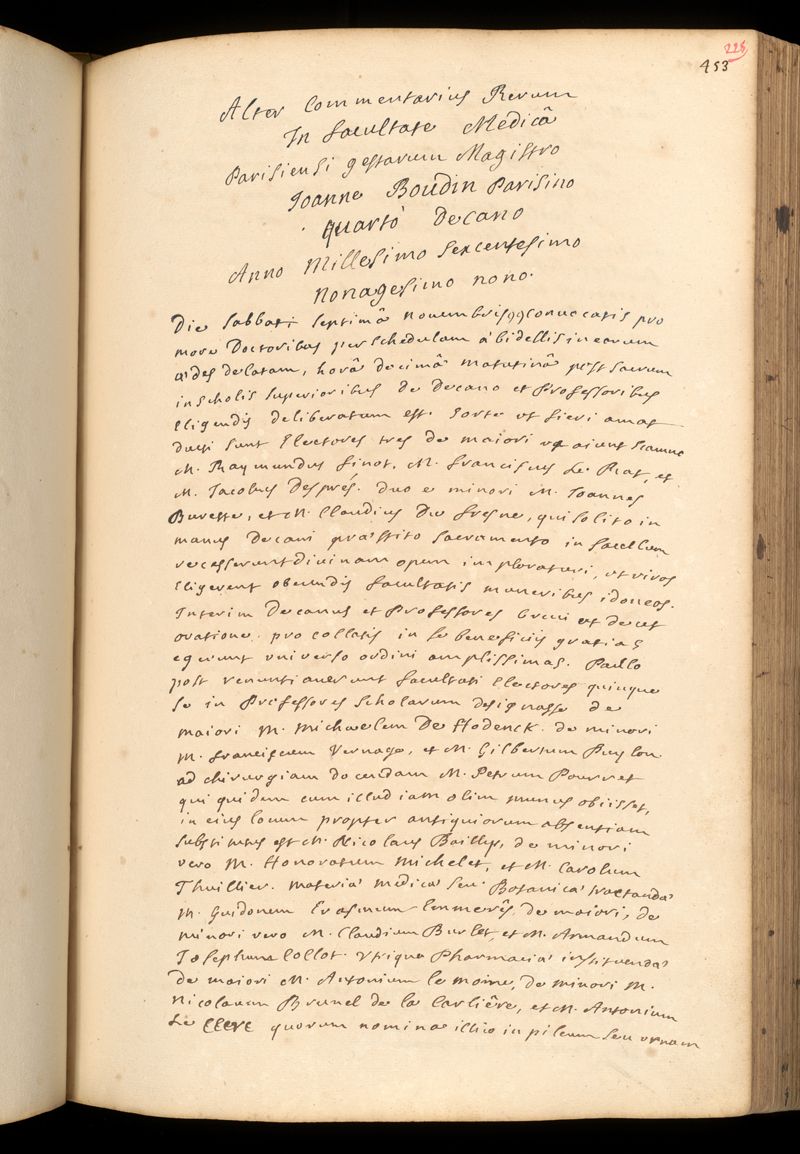 228
453
Alter Commentarius Rerum
In facultate Medicâ
Parisiensi gestarum Magistro
Joanne Boudin Parisino
quartò Decano
Anno Millesimo Sexcentesimo
nonagesimo nono.
Die Sabbati Septimâ novembris 99 convocatis pro
more Doctoribus per schedulam à bidellis in eorum
ædes delatam, horâ decimâ matutinâ post sacrum
in scholis superioribus de Decano et Professoribus
Eligendis deliberatum est. Sorte ut fieri amat
ducti sunt Electores tres de maiori ut aiunt scamno
M. Raymundus finot, M. franciscus Le Rat, et
M. Jacobus Després. duo e minori M. Joannes
Burette, et M. Claudius Du fresne, qui solito in
manus Decani præstito sacramento in sacellum
recesserunt divinam opem imploraturi, ut viros
Eligerent obeundis facultatis muneribus idoneos.
Interim Decanus et Professores brevi ut decet
oratione pro collatis in se beneficiis gratias
egerunt universo ordini amplissimas. Paulo
post renuntiaverunt facultati Electores quinque
se in Professores scholarum designasse de
maiori M. Michaelem De Hodenck. de minori
M. franciscum Vernage, et M. Gilbertum Puylon
ad chirurgiam docendam M. Petrum Pourret
qui quidem cum illud iam olim munus obiisset,
in eius locum propter antiquiorum absentiam
substitutus est M. Nicolaus Bailly, de minori
vero M. Honoratum Michelet, et M. Carolum
Thuillier. materia medica seu Botanica tractanda
M. Guidonem Erasmum Emmerês, de maiori, de
minori vero M. Claudium Burlet, et M. Armandum
Josephum Collot. utrique Pharmacia instituenda
de maiori M. Antonium le moine, de minori M.
Nicolaum Brunel de la Carliêre, et M. Antonium
Le Clerc quorum nomina illico in pileum seu urnam